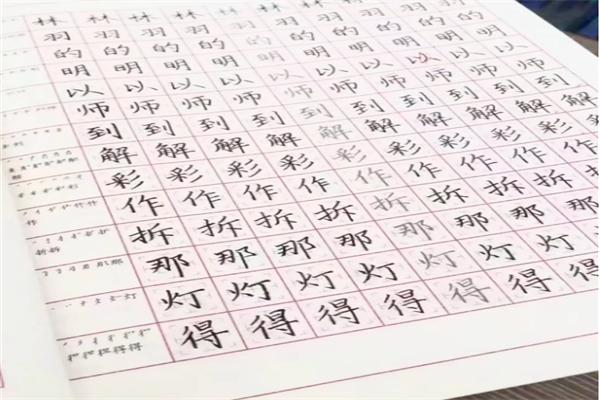 林 林 林 林 林 林 林 林
羽 羽 羽 羽 羽 羽 羽 羽 羽
的 的 的 的 的 的 的 的 的
明 明 明 明 明 明 明 明 明
以 以 以 以 以 以 以 以 以 以
师 师 师 师 师 师 师 师 师 师
到 到 到 到 到 到 到 到 到 到
解 解 解 解 解 解 解 解 解 解
彩 彩 彩 彩 彩 彩 彩 彩 彩
作 作 作 作 作 作 作 作 作
拆 拆 拆 拆 拆 拆 拆 拆 拆
那 那 那 那 那 那 那 那
灯 灯 灯 灯 灯 灯 灯
得 得 得 得 得 得 得